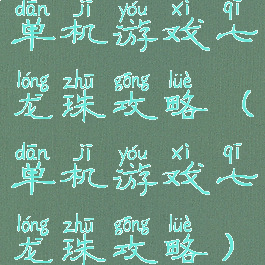 dān jī yóu xì qī
单机游戏七
lóng zhū gōng lüè
龙珠攻略(
dān jī yóu xì qī
单机游戏七
lóng zhū gōng lüè
龙珠攻略)